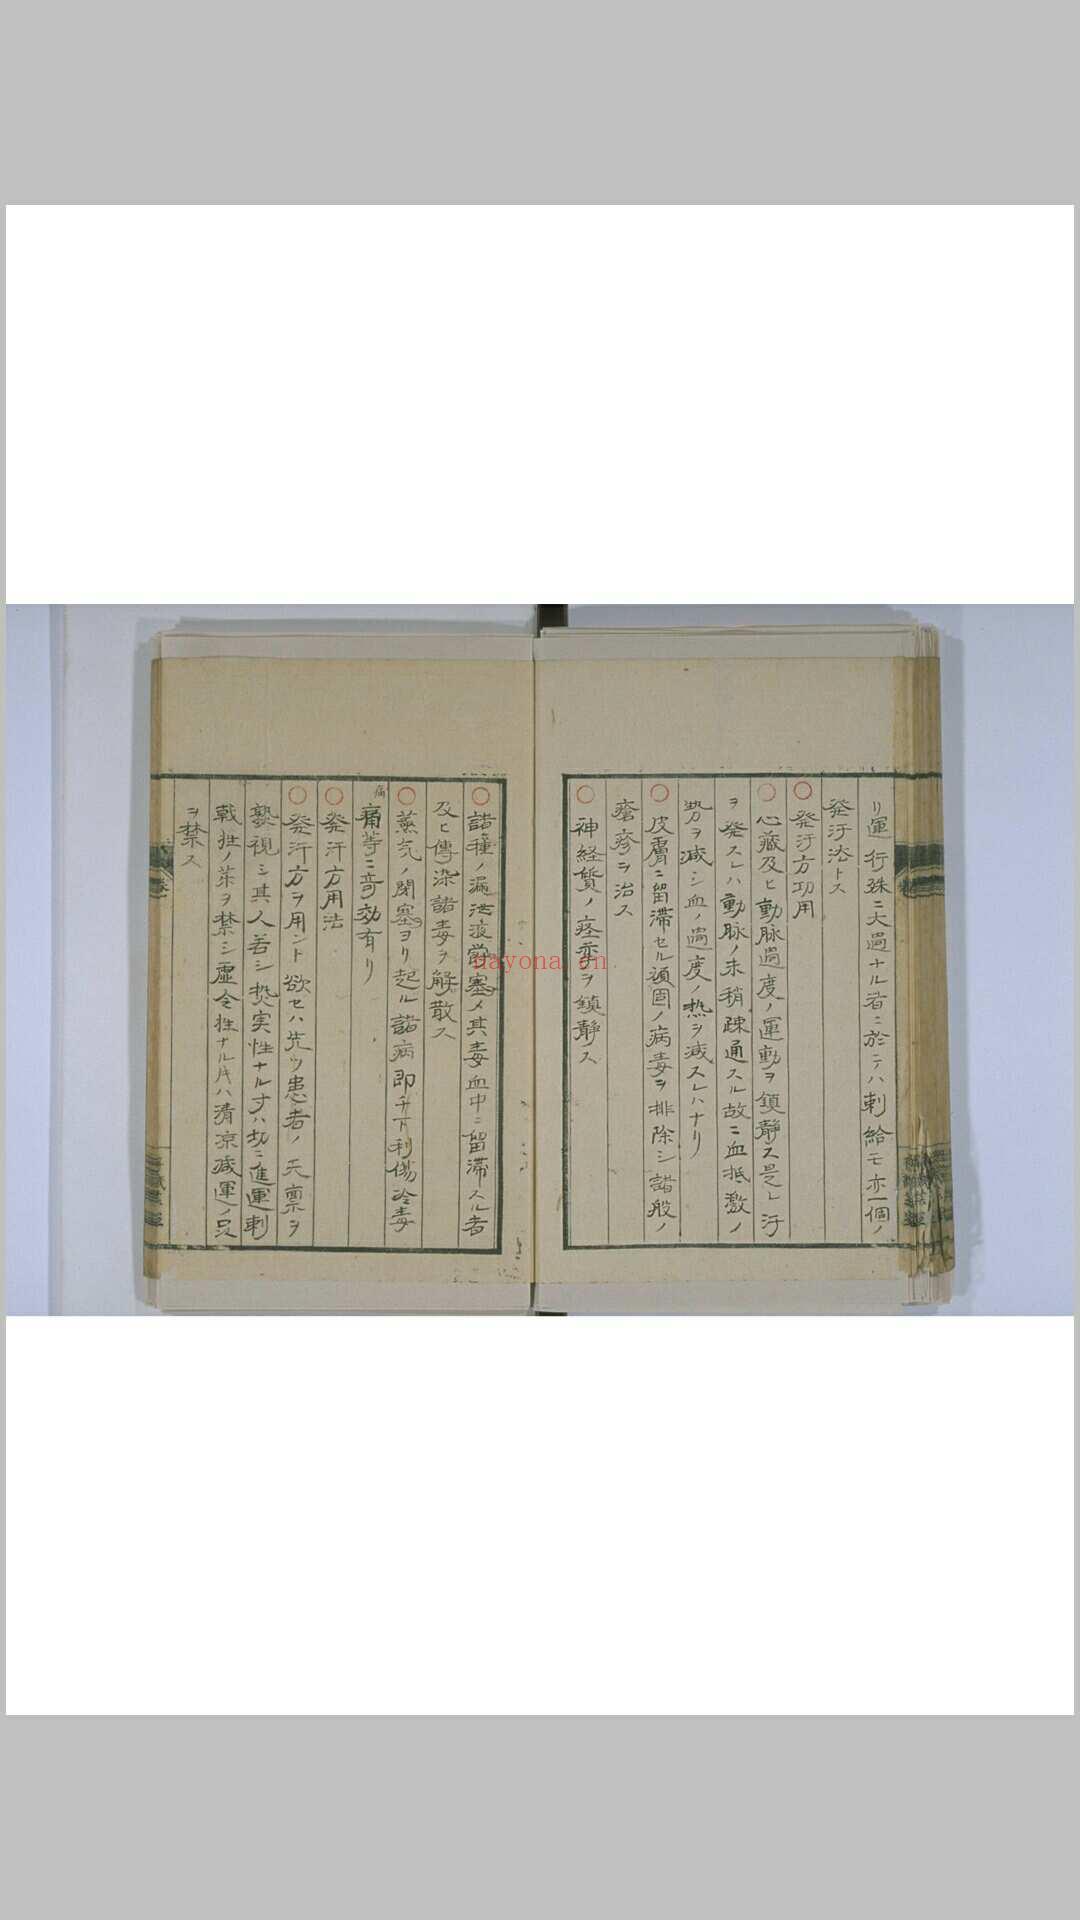 リ運行殊ニ大過ナル者ニ於テハ刺絡モ亦一個ノ
発汗法トス
発汗方功用
心藏及ヒ動脉過度ノ運動ヲ鎮静ス是レ汗
ヲ発スレハ動脉ノ末稍疎通スル故ニ血抵激ノ
势ヲ减シ血ノ過度ノ热ヲ减スレハナリ
皮膚ニ留滞セル頑固ノ病毒ヲ排除シ諸般ノ
瘡疹ヲ治ス
神経質ノ痙ヲ鎮静ス
諸種ノ漏泄液壅塞メ其毒血中ニ留滞スル者
及ヒ傳染諸毒ヲ解散ス
蒸気ノ閉塞ヨリ起ル諸病即チ下利傷冷毒
痛
痛等ニ奇効有リ
発汗方用法
発汗方ヲ用ント欲セハ先ツ患者ノ天禀ヲ
熟視シ其人若シ热実性ナルハ切ニ進運刺
戟性ノ薬ヲ禁シ虚冷性ナル片ハ清凉减運ノ品
ヲ禁ス
nayona.cn